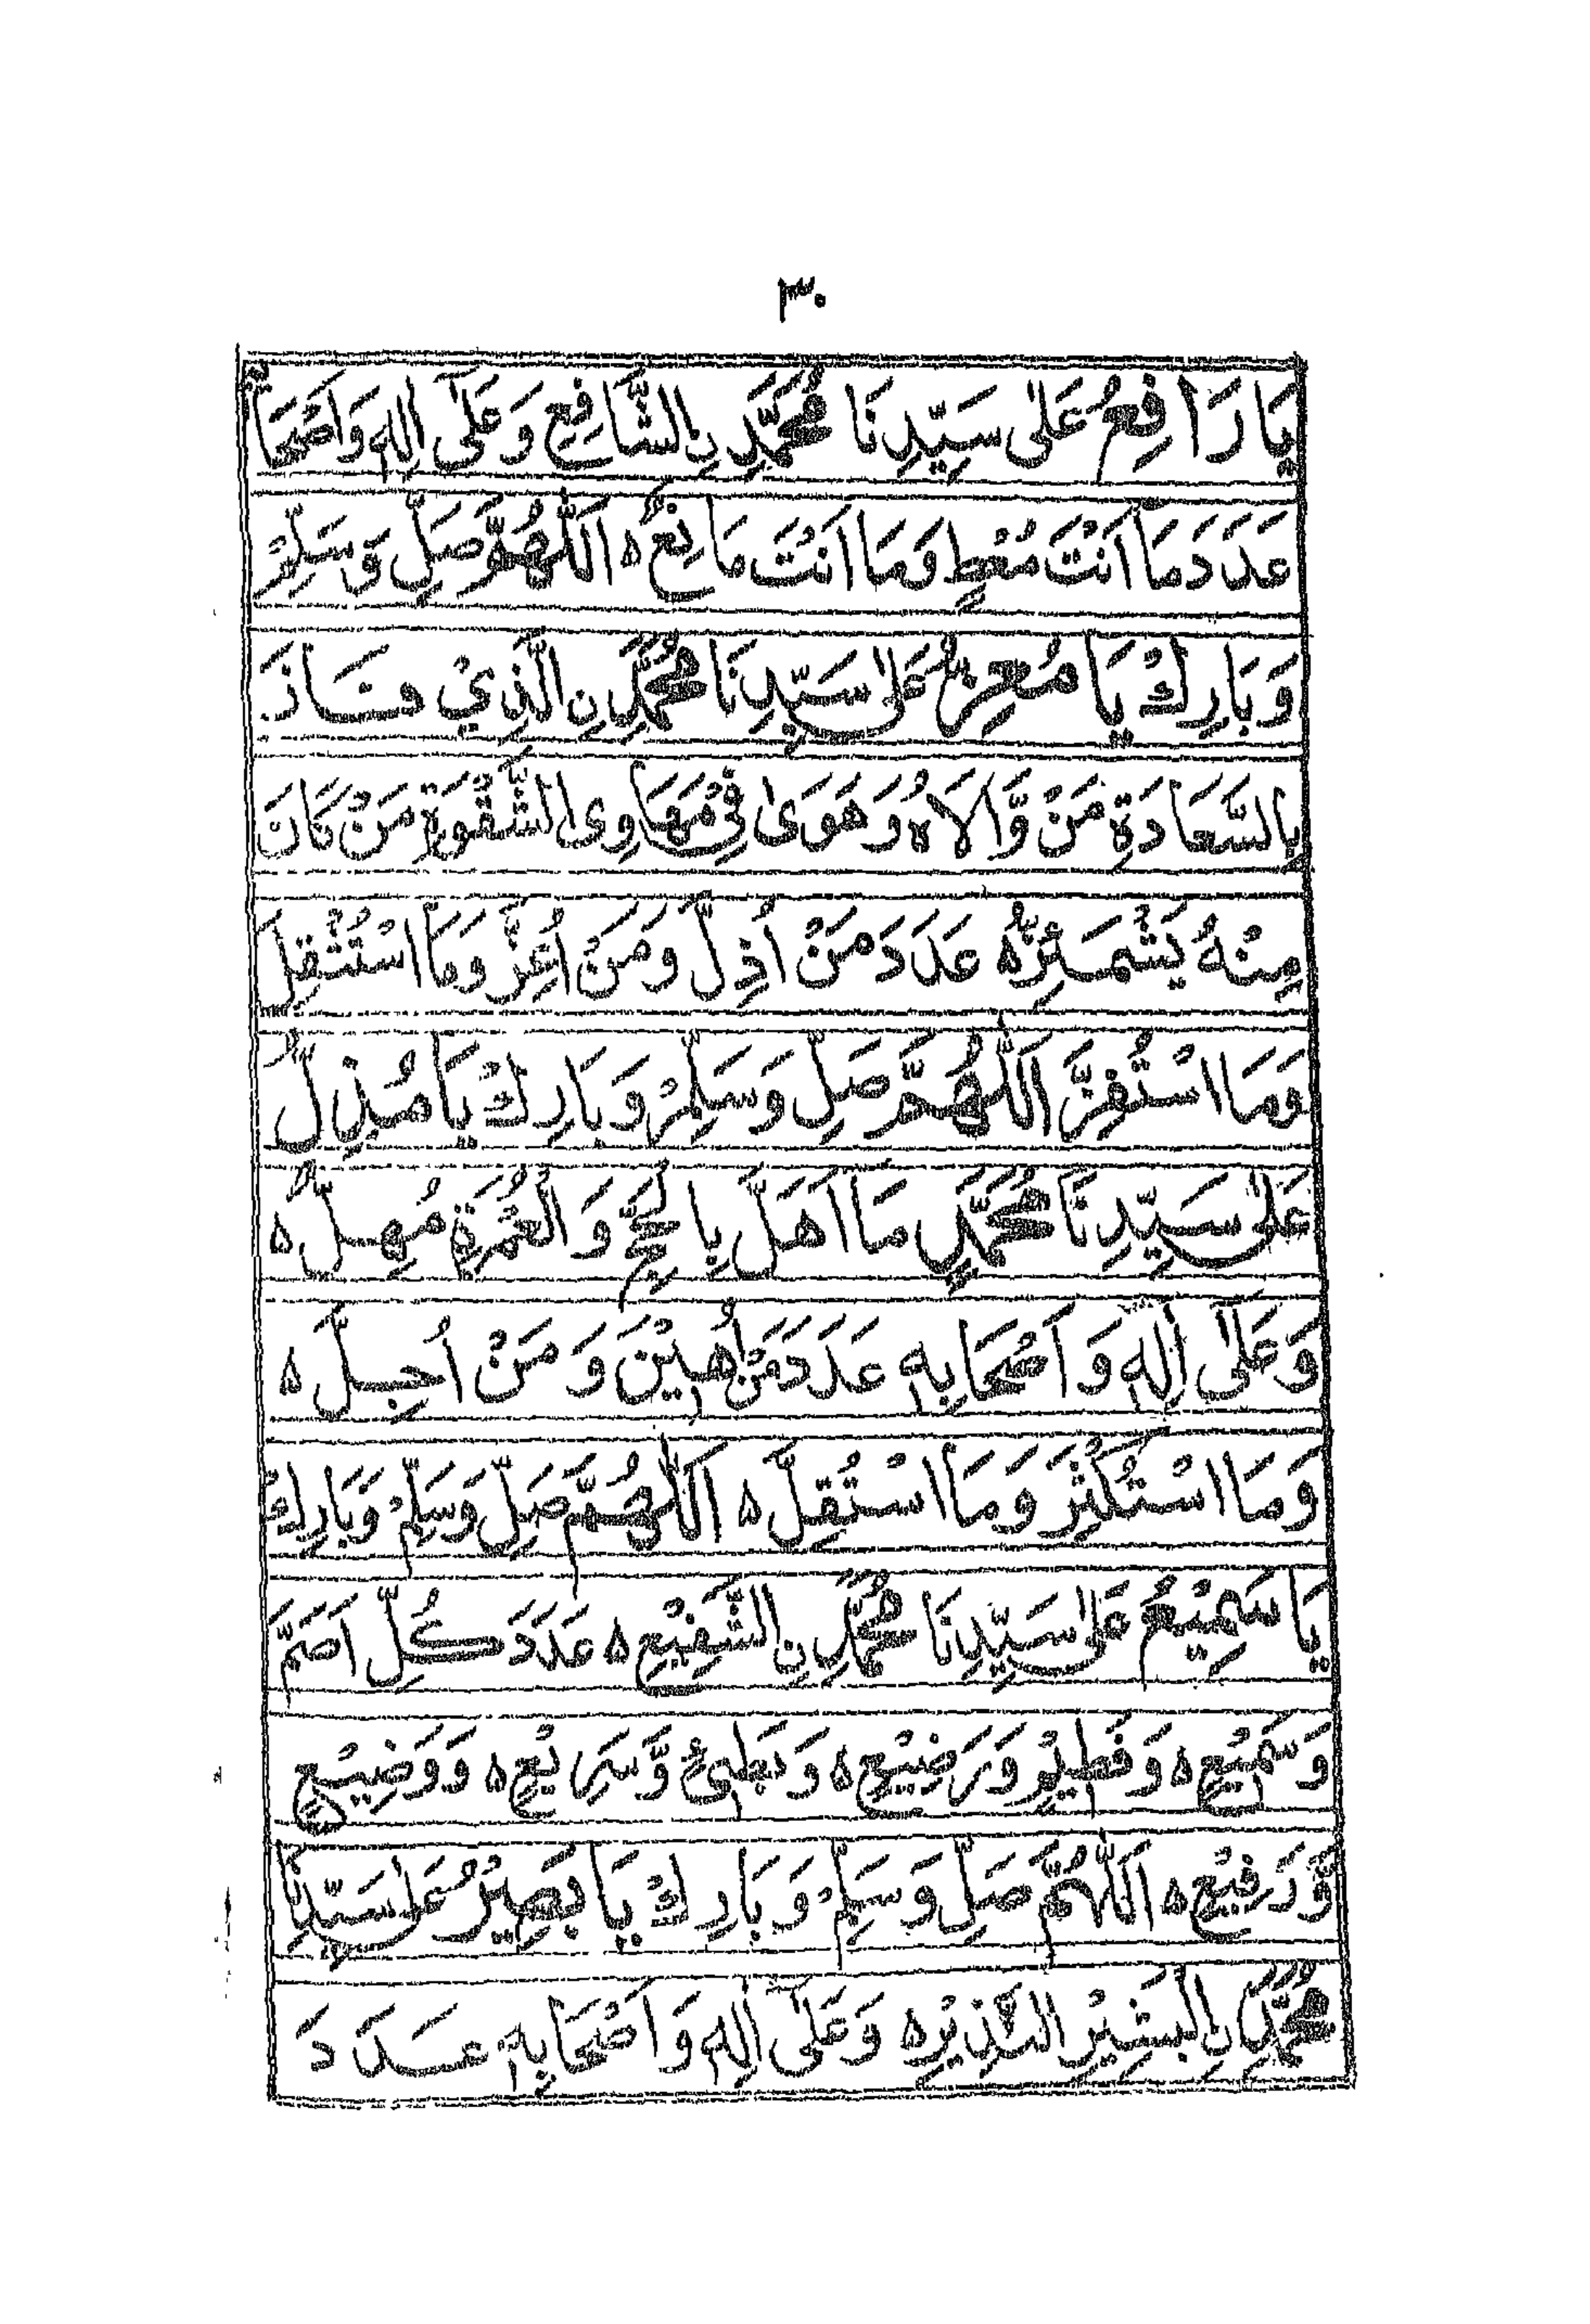 ٣٠
يَا رَافِعُ عَلٰى سَيِّدِنَا مُحَمَّدِ نِالشَّافِعِ وَعَلٰٓى اٰلِهٖ وَاَصْحَابِهٖ
عَدَدَ مَا اَنْتَ مُعْطٍ وَمَا اَنْتَ مَانِعٌ ه اَللّٰهُمَّ صَلِّ وَسَلِّمْ
وَبَارِكْ يَا مُعِزُّ عَلٰى سَيِّدِنَا مُحَمَّدِ نِ الَّذِيْ فَازَ
بِالسَّعَادَةِ مَنْ وَّالَاهُ وَهَوَىٰ فِيْ مَهَاوِى الشِّقْوَةِ مَنْ كَانَ
مِنْهُ يَشْمَئِزُّ ه عَدَدَ مَنْ اُذِلَّ وَمَنْ اُعِزَّ وَمَا اسْتُثْقِلَ
وَمَا اسْتُفِزَّ اَللّٰهُمَّ صَلِّ وَسَلِّمْ وَبَارِكْ يَا مُذِلُّ
عَلٰى سَيِّدِنَا مُحَمَّدٍ مَا اَهَلَّ بِالْحَجِّ وَالْعُمْرَةِ مُهِلٌّ ه
وَعَلٰٓى اٰلِهٖ وَاَصْحَابِهٖ عَدَدَ مَنْ اُهِيْنَ وَمَنْ اُجِلَّ ه
وَمَا اسْتُكْثِرَ وَمَا اسْتُقِلَّ ه اَللّٰهُمَّ صَلِّ وَسَلِّمْ وَبَارِكْ
يَا سَمِيْعُ عَلٰى سَيِّدِنَا مُحَمَّدِ نِ الشَّفِيْعِ ه عَدَدَ كُلِّ اَصَمَّ
وَسَمِيْعٍ ه وَفَطِيْمٍ وَرَضِيْعٍ ه وَبَطِىْءٍ وَّسَرِيْعٍ ه وَوَضِيْعٍ
وَّرَفِيْعٍ ه اَللّٰهُمَّ صَلِّ وَسَلِّمْ وَبَارِكْ يَا بَصِيْرُ عَلٰى سَيِّدِنَا
مُحَمَّدِ نِ الْبَشِيْرِ النَّذِيْرِ ه وَعَلٰٓى اٰلِهٖ وَاَصْحَابِهٖ عَدَدَ